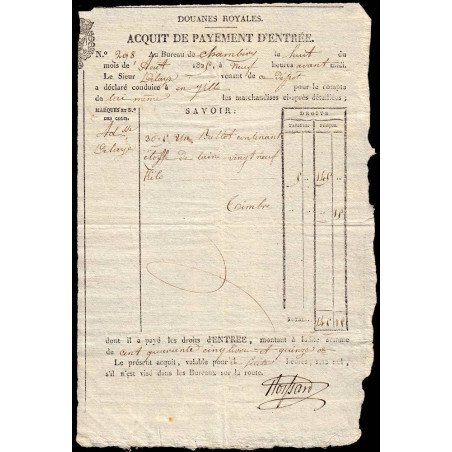 DOUANES ROYALES.
ACQUIT DE PAYEMENT D'ENTRÉE.
N.° 208 Au Bureau de Chambéry le huit du
mois de Août 182 à neuf heures avant midi.
Le Sieur Delaye venant de ce dépôt
a déclaré conduire à en ville pour le compte
de lui même les marchandises ci-après détaillées;
SAVOIR:
MARQUES ET N.os
DES COLIS.
DROITS
Delaye
Un Ballot contenant
étoffe de laine vingt neuf
kilo
145
Timbre
15
TOTAL 145 15
dont il a payé les droits d'ENTRÉE, montant à ladite somme
de cent quarante cinq livres et quinze
Le présent acquit, valable pour
s'il n'est visé dans les Bureaux sur la route.